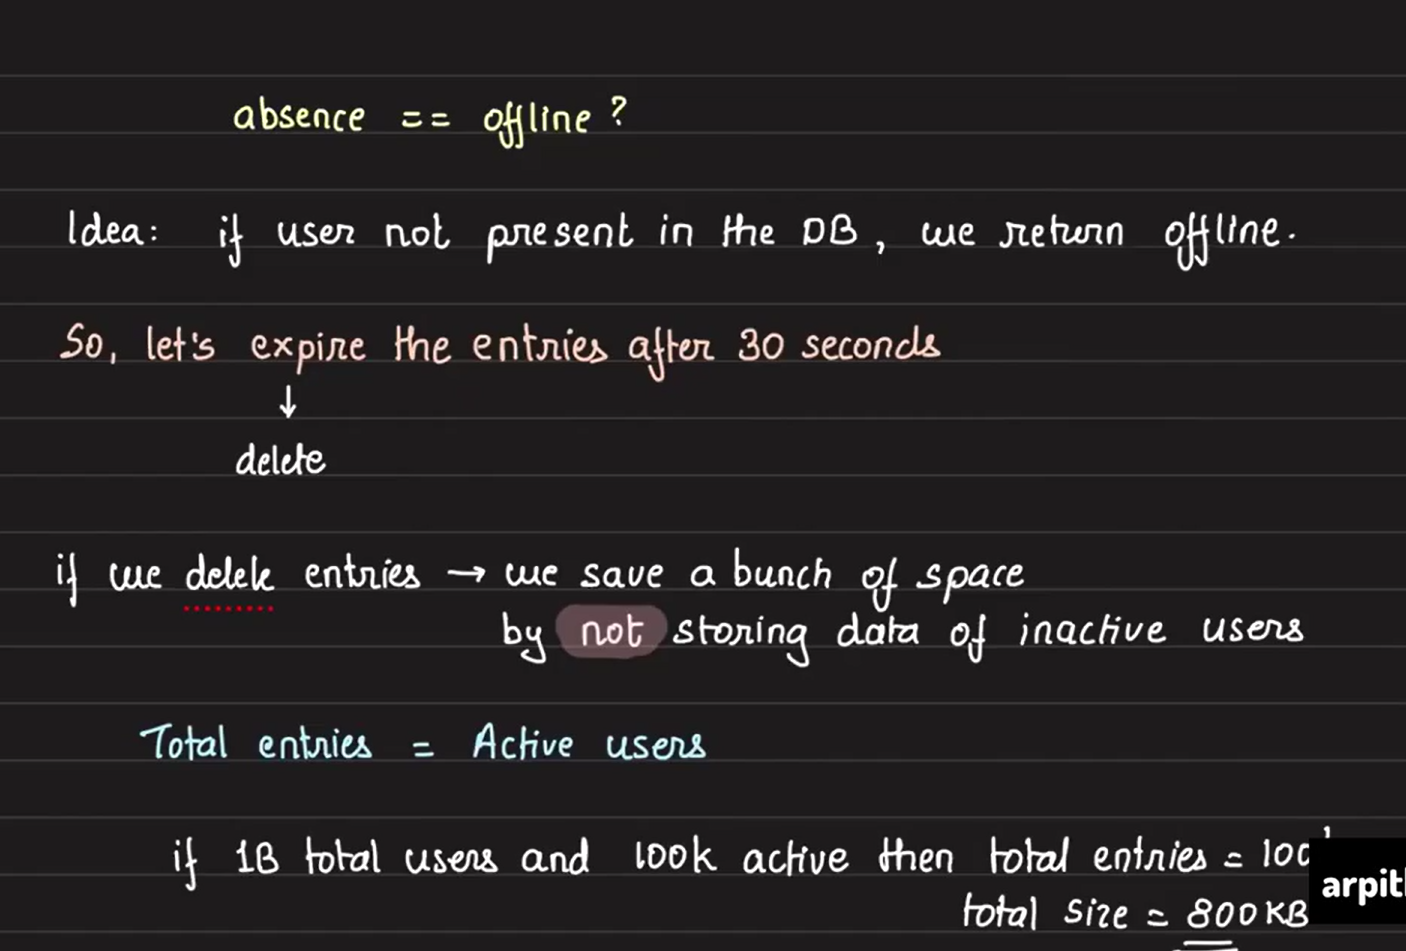 absence == offline ?
Idea: if user not present in the DB, we return offline.
So, let's expire the entries after 30 seconds
↓
delete
if we delete entries → we save a bunch of space
by not storing data of inactive users
Total entries = Active users
if 1B total users and 100k active then total entries = 100
total size = 800 KB
arpit